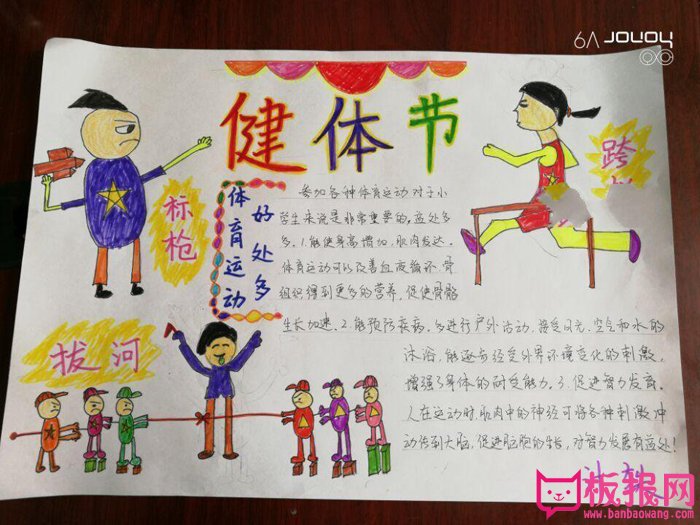 6A JOYOY
健体节
标枪
跨
体育运动
好处多
参加各种体育运动对于小
学生来说是非常重要的，益处多
多。1.能使身高增加，肌肉发达。
体育运动可以改善血液循环，骨
组织得到更多的营养，促使骨骼
生长加速。2.能预防疾病。多进行户外活动，接受日光、空气和水的
沐浴，能逐步经受外界环境变化的刺激，
增强了身体的耐受能力。3.促进智力发育。
人在运动时，肌肉中的神经可将各种刺激冲
动传到大脑，促进脑胞的生长，对智力发展有益处！
拔河
板报网
www.banbaowang.com